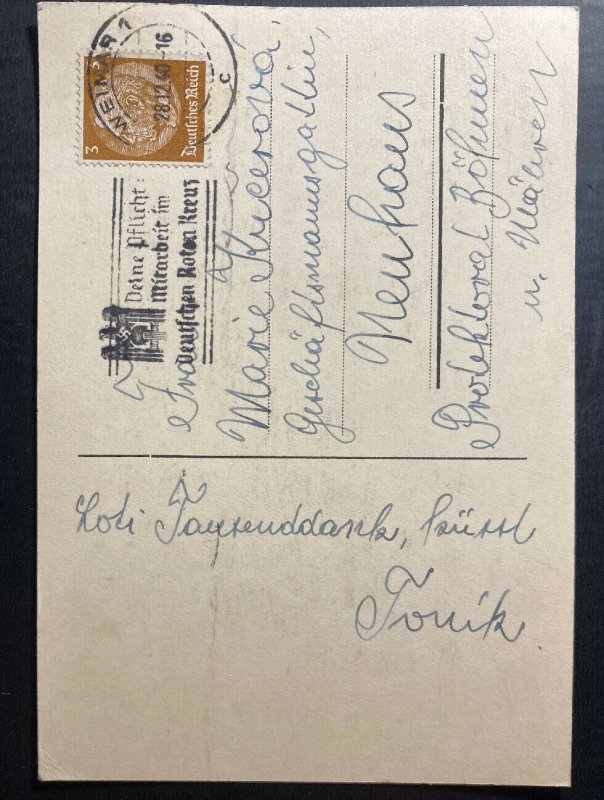 WEIMAR 1
28.12.40.-16
c
3
3
Deutsches Reich
Deine Pflicht:
Mitarbeit im
Deutschen Roten Kreuz
Frau
Marie
Geschäftsmannsgattin,
Neuhaus
Protektorat Böhmen
u. Mähren
Loti Tausenddank, küsst
Tonik.